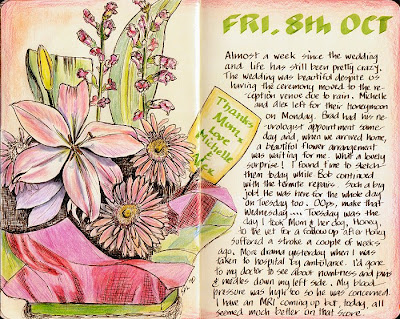 FRI. 8th OCT
Almost a week since the wedding
and life has still been pretty crazy.
The wedding was beautiful despite us
having the ceremony moved to the re-
ception venue due to rain. Michelle
and Alex left for their honeymoon
on Monday. Brad had his ne-
urologist appointment same
day and when we arrived home,
a beautiful flower arrangement
was waiting for me. What a lovely
surprise! I found time to sketch
them today while Bob continued
with the termite repairs. Such a big
job! He was here for the whole day
on Tuesday too. OOps, make that
Wednesday.... Tuesday was the
day I took Mum & her dog, Honey,
to the vet for a follow up after Honey
suffered a stroke a couple of weeks
ago. More drama yesterday when I was
taken to hospital by ambulance. I'd gone
to my doctor to see about numbness and pins
& needles down my left side. My blood
pressure was high too so he was concerned.
I have an MRI coming up but, today, all
seemed much better on that score.
Thanks,
Mum,
Love
Michelle
&
Alex